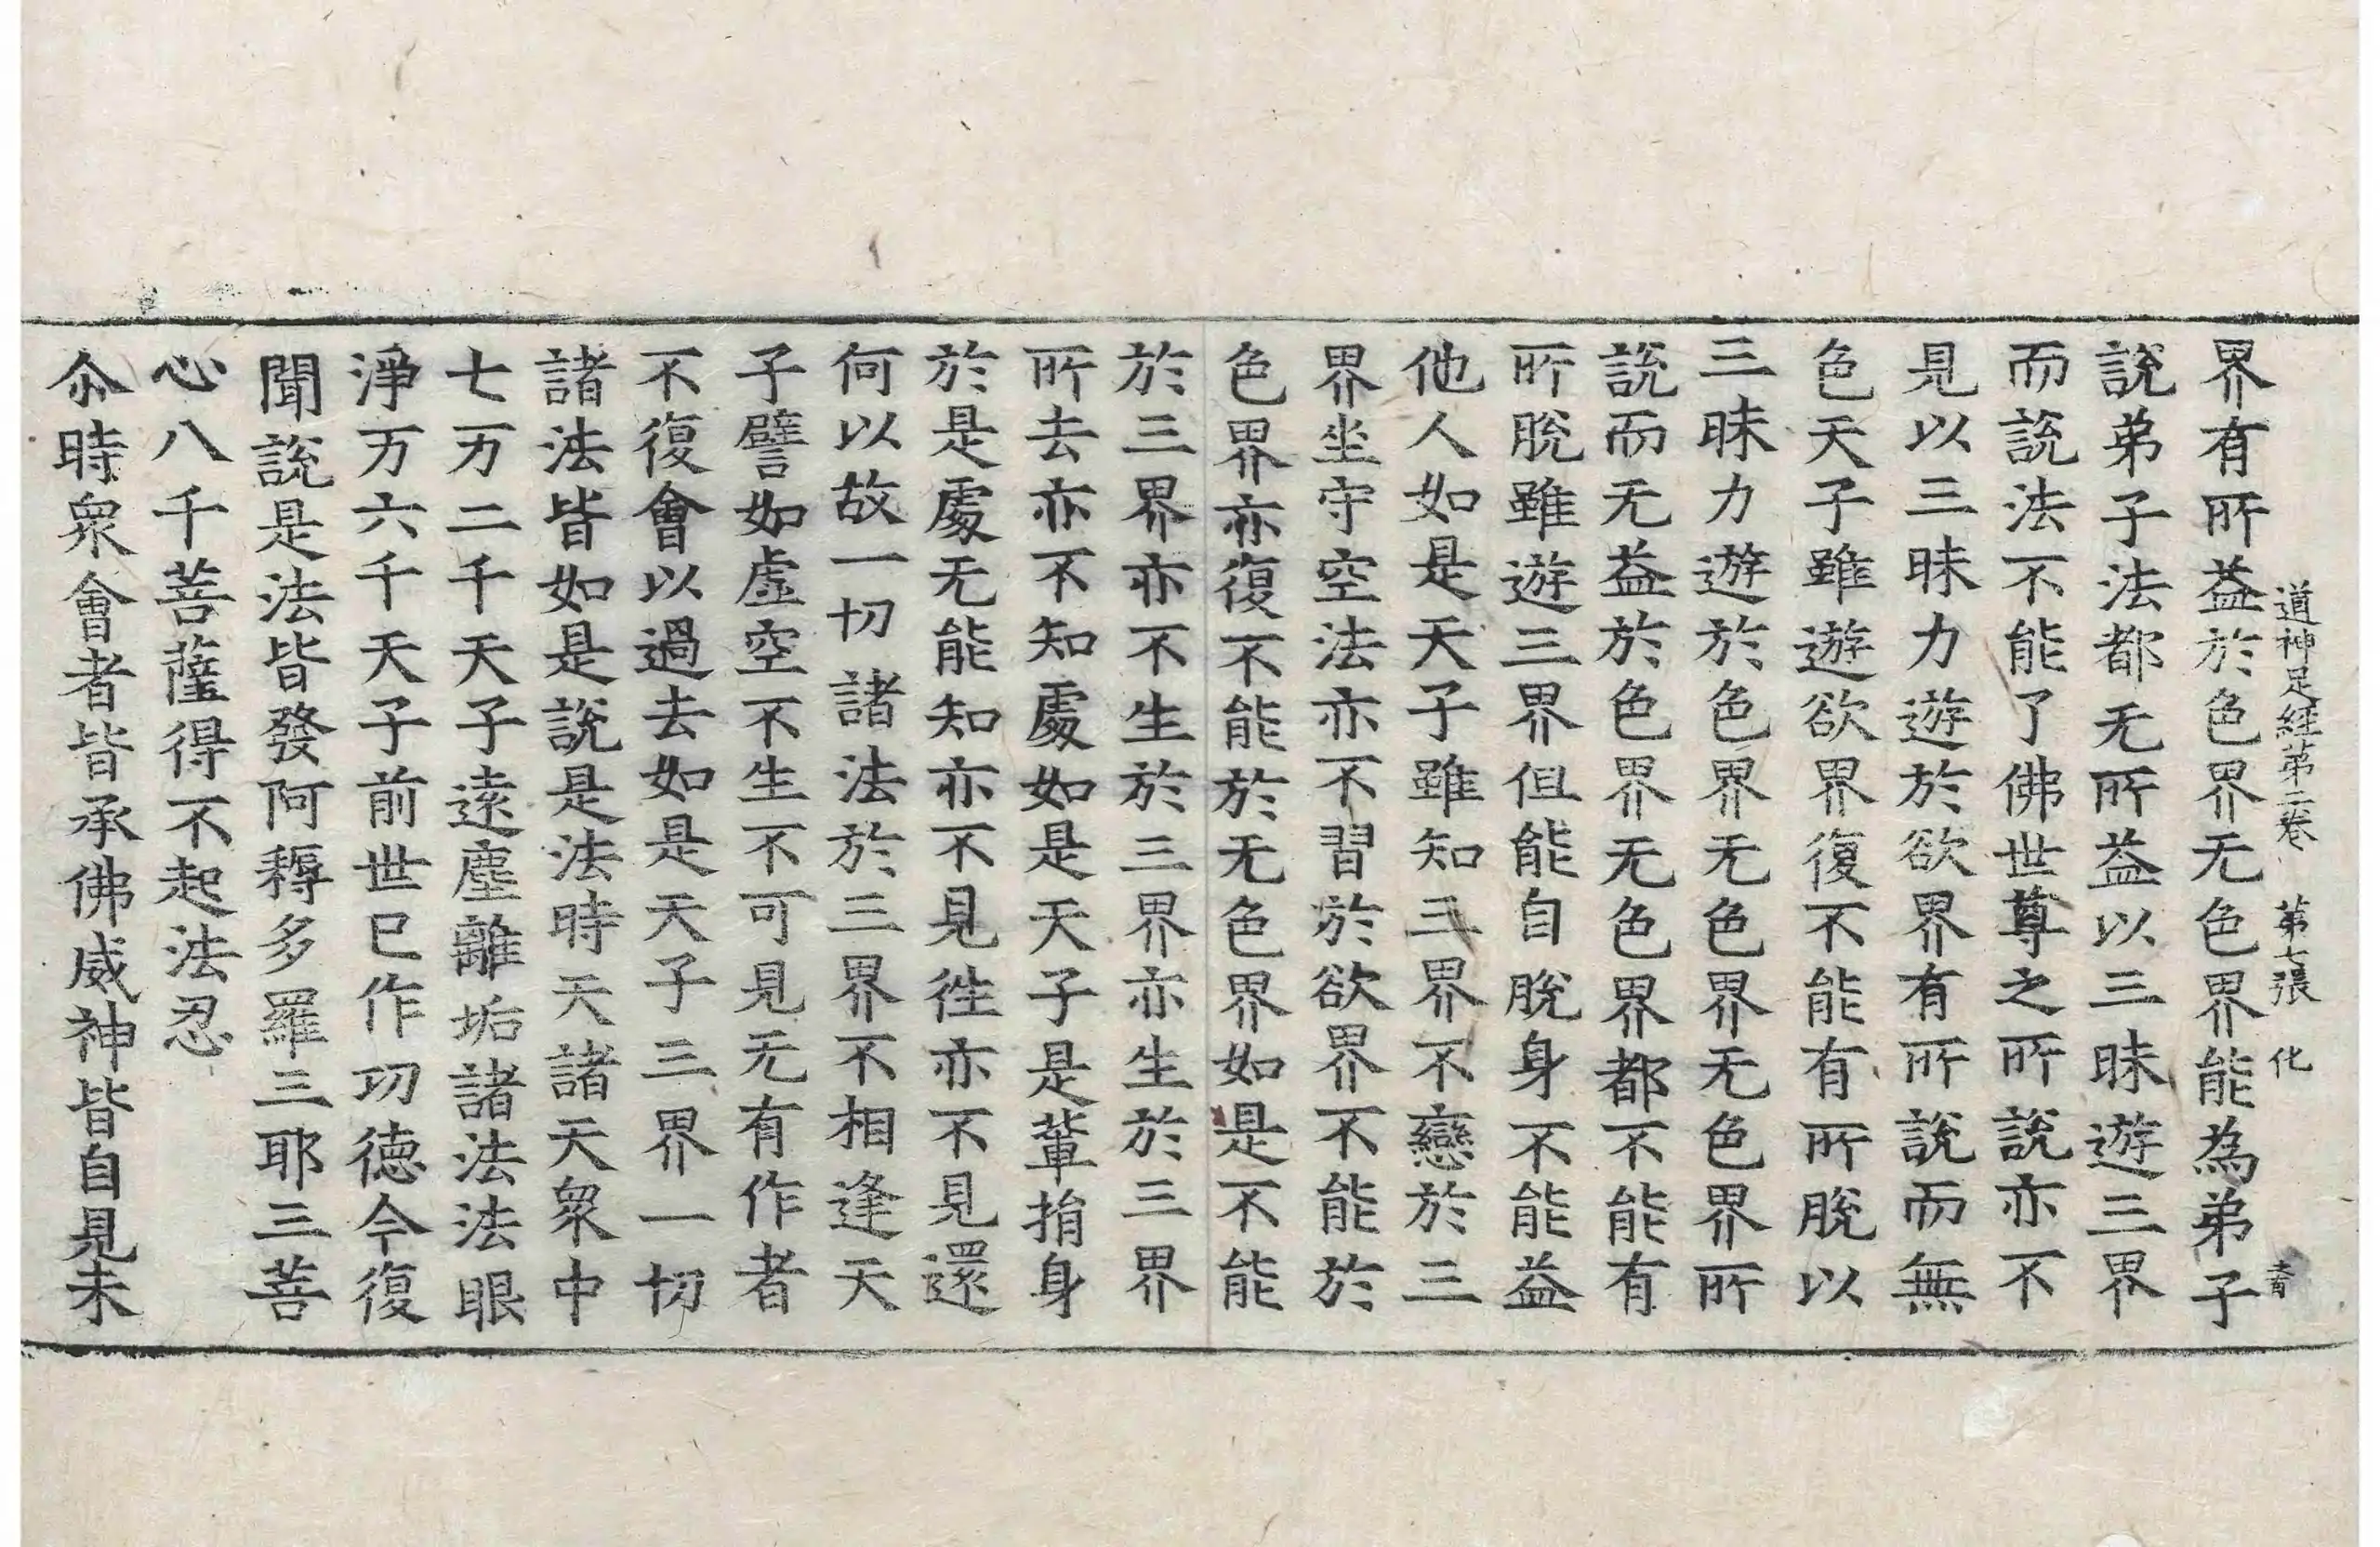 道神足經第二卷　第七張　化
界有所益於色界无色界能為弟子
說弟子法都无所益以三昧遊三界
而說法不能了佛世尊之所說亦不
見以三昧力遊於欲界有所說而無
色天子雖遊欲界復不能有所脫以
三昧力遊於色界无色界无色界所
說而无益於色界无色界都不能有
所脫雖遊三界但能自脫身不能益
他人如是天子雖知三界不戀於三
界坐守空法亦不習於欲界不能於
色界亦復不能於无色界如是不能
於三界亦不生於三界亦生於三界
所去亦不知處如是天子是輩捐身
於是處无能知亦不見徃亦不見還
何以故一切諸法於三界不相逢天
子譬如虛空不生不可見无有作者
不復會以過去如是天子三界一切
諸法皆如是說是法時天諸天衆中
七万二千天子遠塵離垢諸法法眼
淨万六千天子前世已作功德今復
聞說是法皆發阿耨多羅三耶三菩
心八千菩薩得不起法忍
尒時衆會者皆承佛威神皆自見未